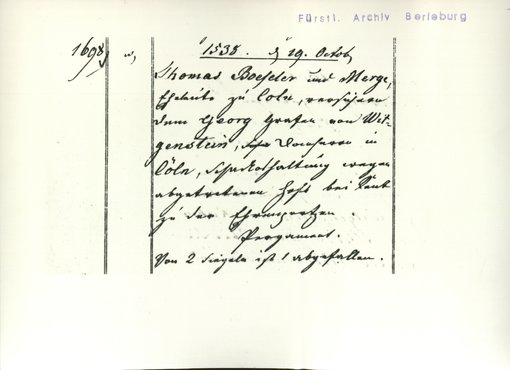 Fürstl. Archiv Berleburg
1698 1538. d 19. Octob
Thomas Boeseler und Merge,
Eheleute zu Cöln, versichern
dem Georg Grafen von Wit-
genstein, Domherrn in
Cöln, Schadloshaltung wegen
abgetretenen Hofs bei
zu der Ehrenpretzen.
Pergament.
Von 2 Siegeln ist 1 abgefallen.